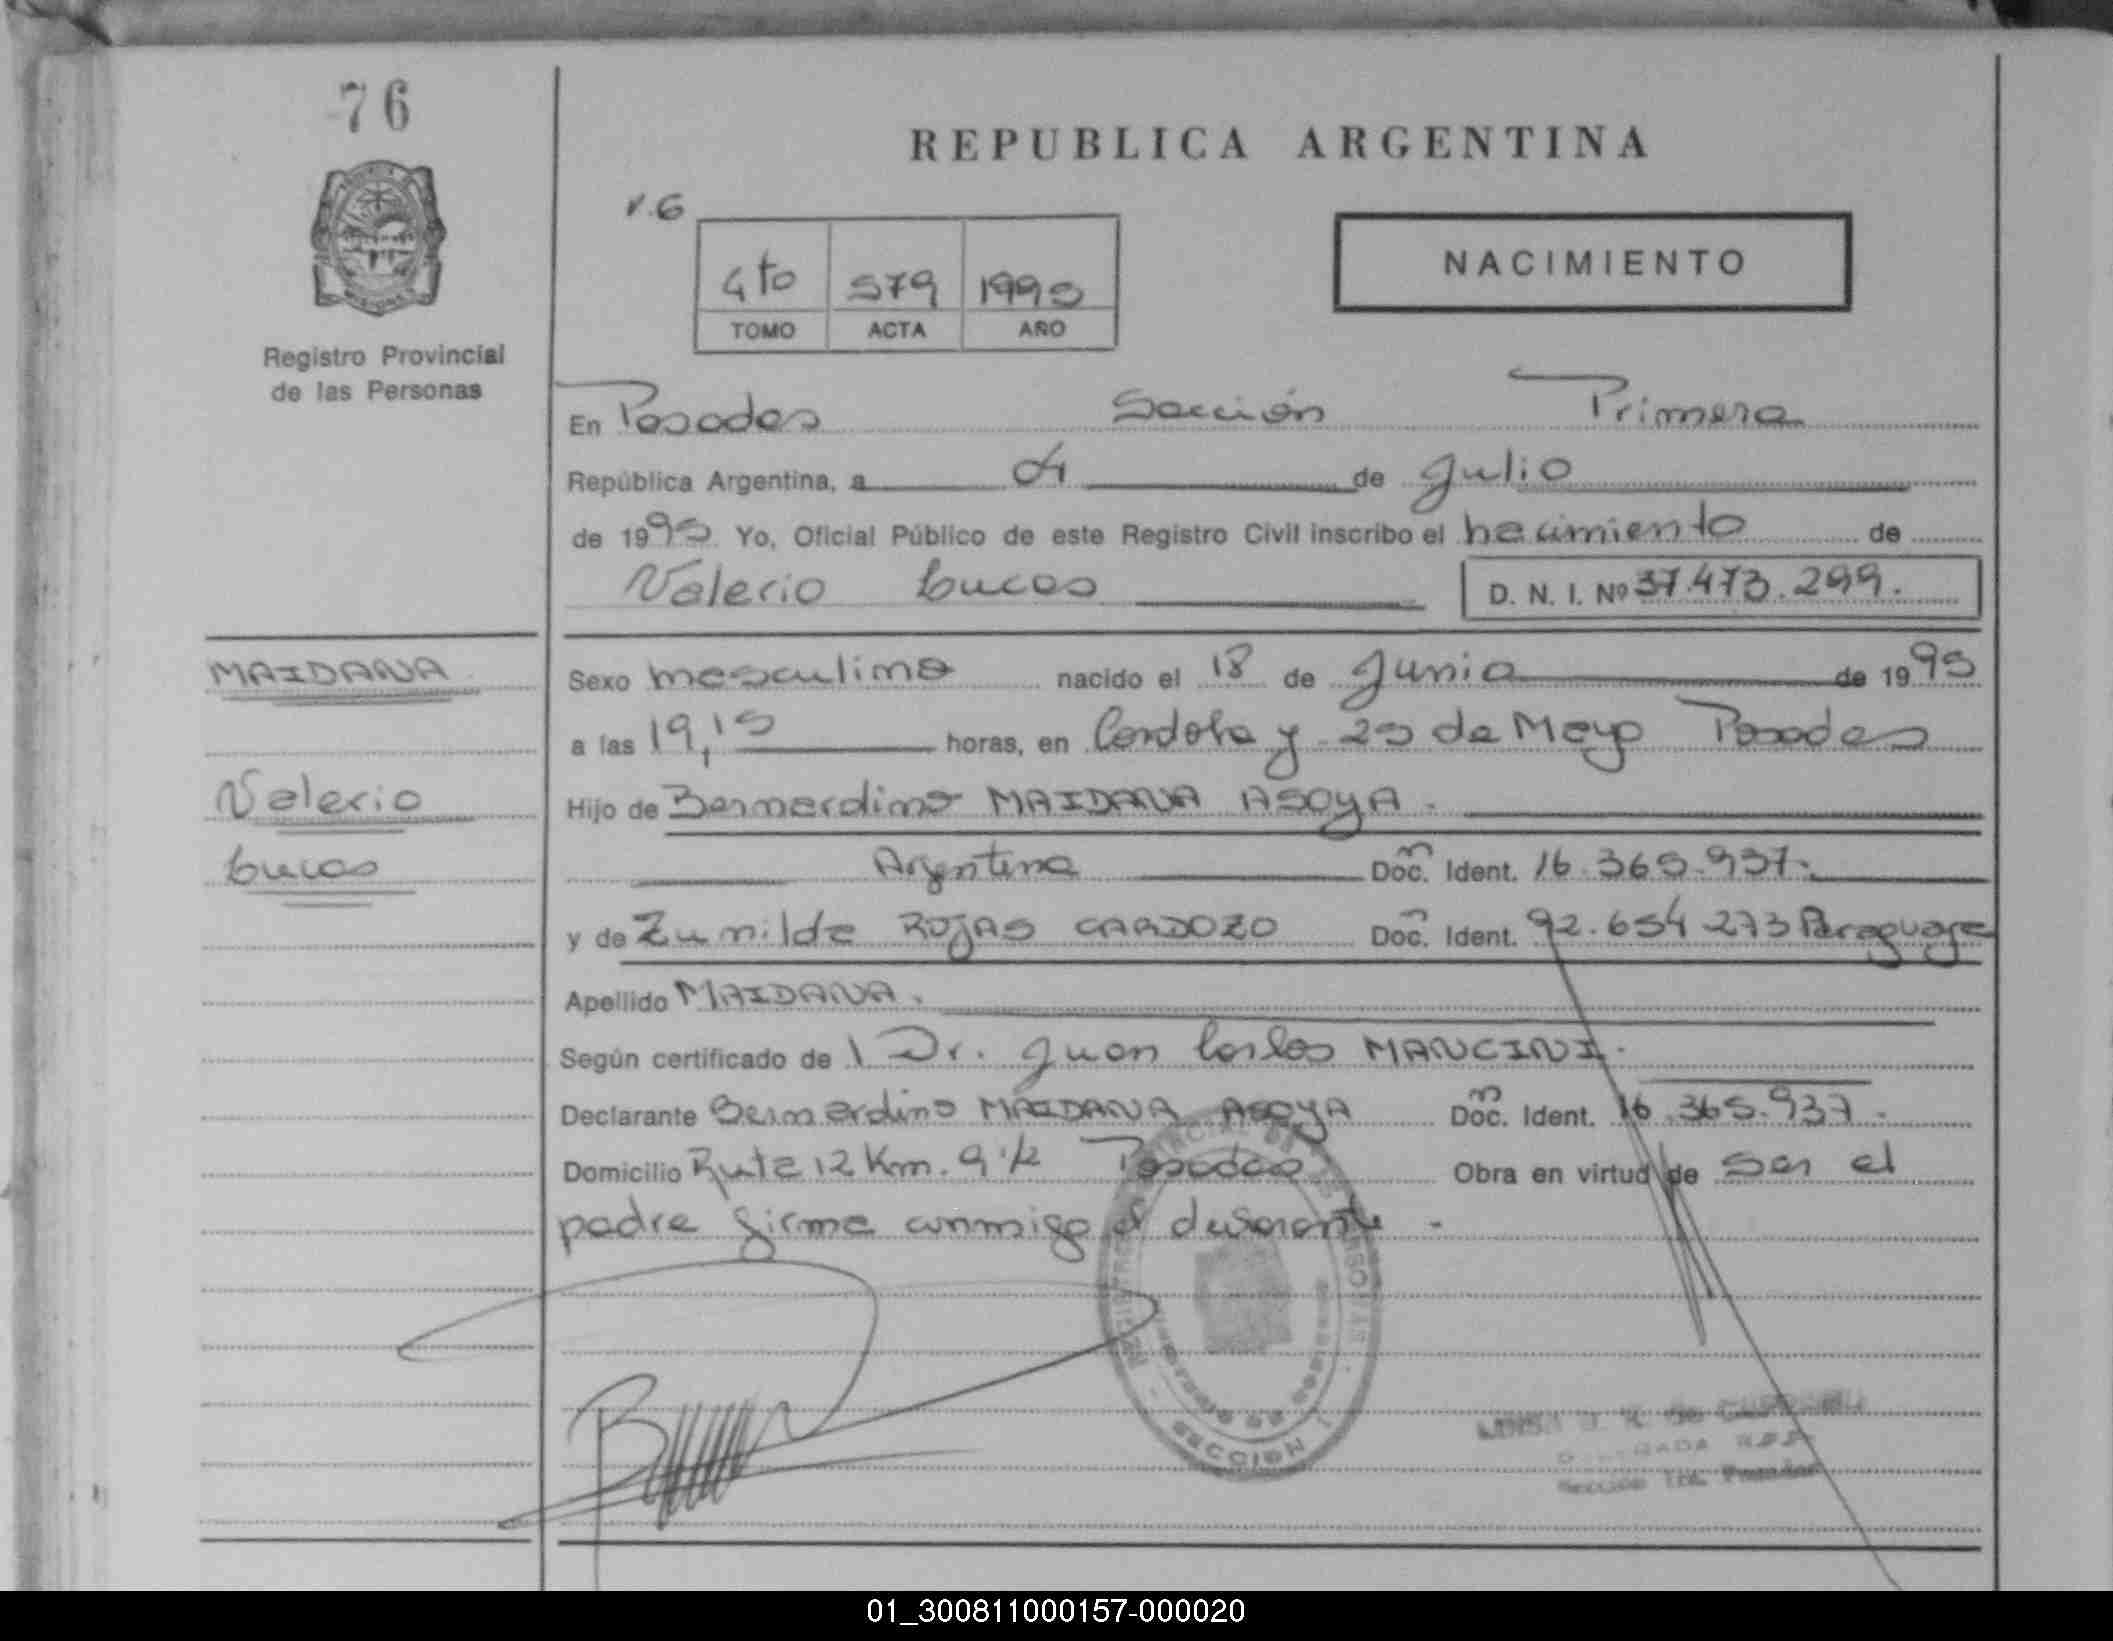 76
REPUBLICA ARGENTINA
V.6
4to 579 1995
TOMO ACTA AÑO
NACIMIENTO
Registro Provincial
de las Personas
En Posadas Sección Primera
República Argentina, a 04 de Julio
de 1995 Yo, Oficial Público de este Registro Civil inscribo el nacimiento de
Valerio Lucas D. N. I. Nº 37.473.299.
MAIDANA
Valerio
Lucas
Sexo masculino nacido el 18 de Junio de 1995
a las 19,15 horas, en Cordoba y 25 de Mayo Posadas
Hijo de Bernardino MAIDANA ASOYA.
Argentina Doc. Ident. 16.365.937.
y de Zunilda ROJAS CARDOZO Doc. Ident. 92.654.273 Paraguaya
Apellido MAIDANA.
Según certificado de Dr. Juan Carlos MANCINI.
Declarante Bernardino MAIDANA ASOYA Doc. Ident. 16.365.937.
Domicilio Ruta 12 Km. 9 1/2 Posadas Obra en virtud de ser el
padre firma conmigo el declarante -
SECCION 1
01_300811000157-000020